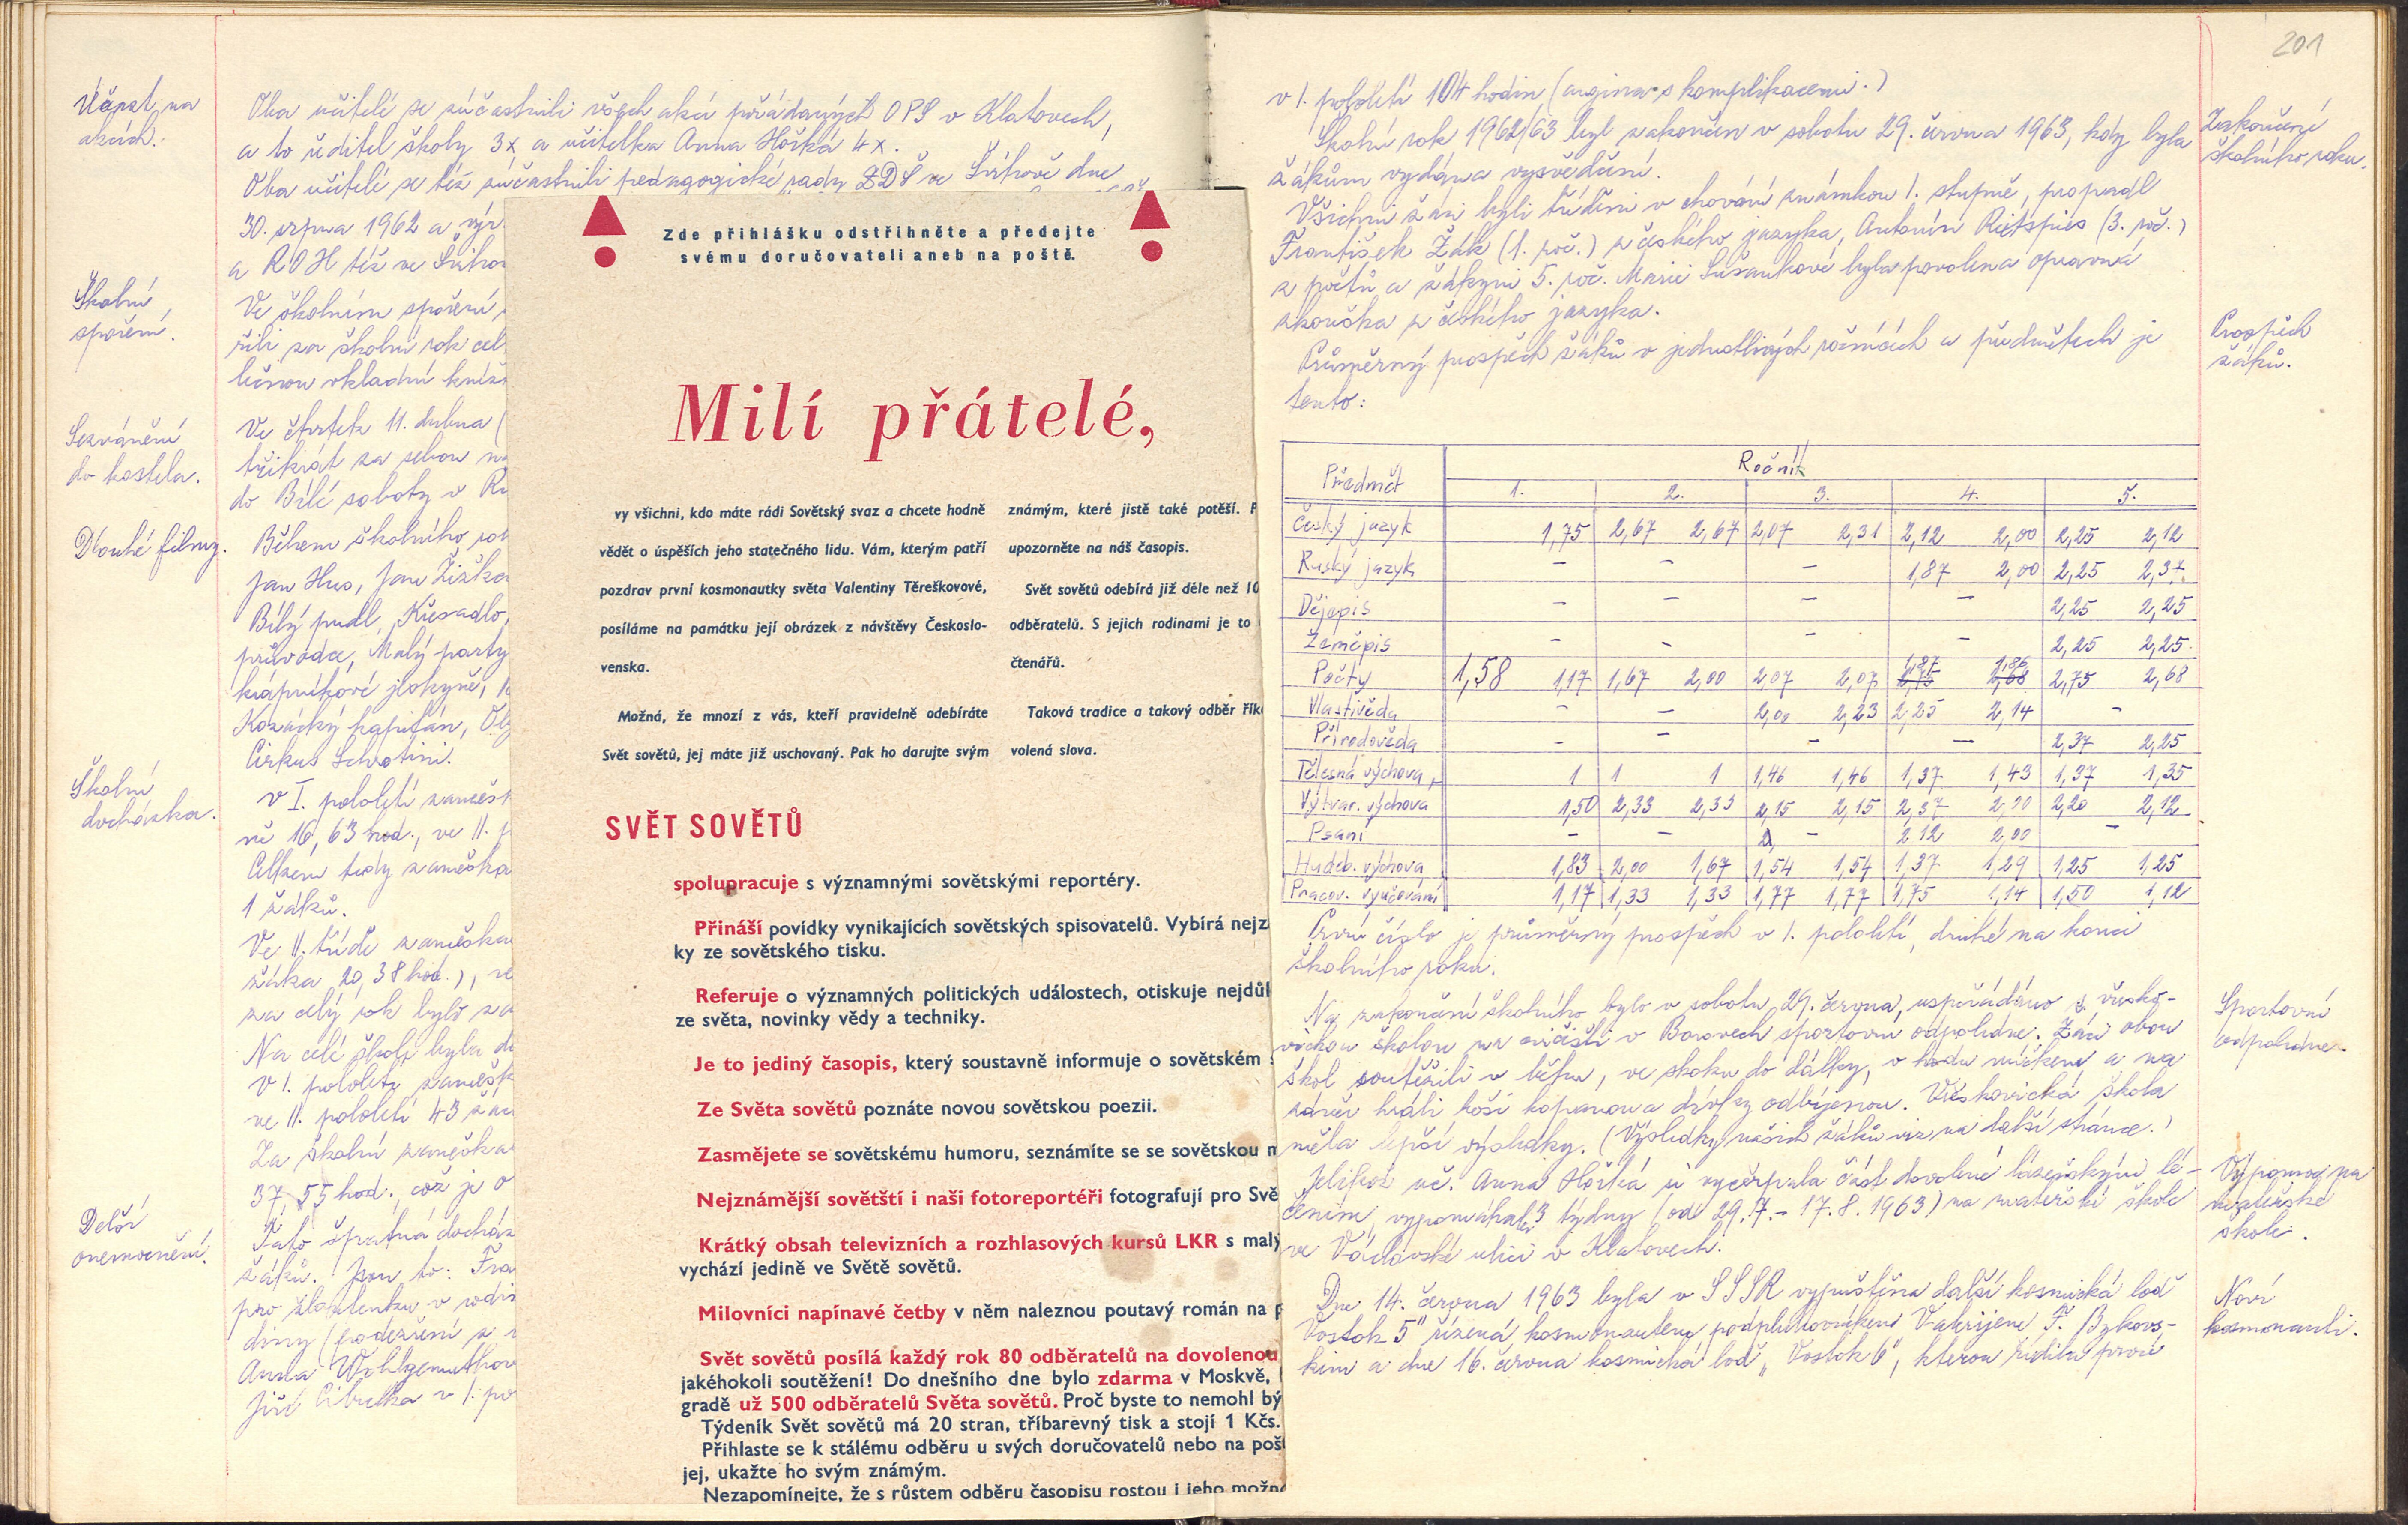 201
Účast na
akcích.
Oba učitelé se zúčastnili všech akcí pořádaných OPS v Klatovech,
a to ředitel školy 3x a učitelka Anna Hořká 4x.
Oba učitelé se též zúčastnili pedagogické rady ZDŠ ve Švihově dne
30. srpna 1962 a výr
a ROH též ve Švihov
Školní
spoření.
Ve školním spoření
řili za školní rok cel
ložnou vkladní kníž
Sezvánění
do kostela.
Ve čtvrtek 11. dubna (
třikrát za sebou
do Bílé soboty v
Dlouhé filmy.
Během školního rok
Jan Hus, Jan Žižka
Bílý pudl, Křesadlo,
průvodce, Malý party
krápníkové jeskyně,
Kozácký kapitán,
Cirkus
Školní
docházka.
V I. pololetí zamešk
ně 16,63 hod., ve II. p
Celkem tedy zameška
1 žáků.
Ve II. třídě zameška
žáka 20,38 hod.), ve
za celý rok bylo za
Na celé škole byla do
V I. pololetí zamešk
ve II. pololetí 43 žác
Za školní zameška
37,55 hod., což je o
Delší
onemocnění.
Tato špatná docház
žáků. Jsou to: Fra
pro žloutenku v rodi
diny (podezření z
Anna Wohlgemuthov
Jiří Cibulka v I. po
Zde přihlášku odstřihněte a předejte
svému doručovateli aneb na poště.
Milí přátelé,
vy všichni, kdo máte rádi Sovětský svaz a chcete hodně
vědět o úspěších jeho statečného lidu. Vám, kterým patří
pozdrav první kosmonautky světa Valentiny Těreškovové,
posíláme na památku její obrázek z návštěvy Českoslo-
venska.
Možná, že mnozí z vás, kteří pravidelně odebíráte
Svět sovětů, jej máte již uschovaný. Pak ho darujte svým
známým, které jistě také potěší. P
upozorněte na náš časopis.
Svět sovětů odebírá již déle než 10
odběratelů. S jejich rodinami je to
čtenářů.
Taková tradice a takový odběr řík
volená slova.
SVĚT SOVĚTŮ
spolupracuje s významnými sovětskými reportéry.
Přináší povídky vynikajících sovětských spisovatelů. Vybírá nejz
ky ze sovětského tisku.
Referuje o významných politických událostech, otiskuje nejdůl
ze světa, novinky vědy a techniky.
Je to jediný časopis, který soustavně informuje o sovětském s
Ze Světa sovětů poznáte novou sovětskou poezii.
Zasmějete se sovětskému humoru, seznámíte se se sovětskou m
Nejznámější sovětští i naši fotoreportéři fotografují pro Svě
Krátký obsah televizních a rozhlasových kursů LKR s malý
vychází jedině ve Světě sovětů.
Milovníci napínavé četby v něm naleznou poutavý román na p
Svět sovětů posílá každý rok 80 odběratelů na dovolenou
jakéhokoli soutěžení! Do dnešního dne bylo zdarma v Moskvě,
gradě už 500 odběratelů Světa sovětů. Proč byste to nemohl bý
Týdeník Svět sovětů má 20 stran, tříbarevný tisk a stojí 1 Kčs.
Přihlaste se k stálému odběru u svých doručovatelů nebo na pošt
jej, ukažte ho svým známým.
Nezapomínejte, že s růstem odběru časopisu rostou i jeho možno
v I. pololetí 104 hodin (angina s komplikacemi.)
Zakončení
školního roku.
Školní rok 1962/63 byl zakončen v sobotu 29. června 1963, kdy byla
žákům vydána vysvědčení.
Všichni žáci byli tříděni v chování známkou 1. stupně, propadl
František Žák (1. roč.) z českého jazyka, Antonín Rietspies (3. roč.)
z počtů a žákyni 5. roč. Marii Sušankové byla povolena opravná
zkouška z českého jazyka.
Prospěch
žáků.
Průměrný prospěch žáků v jednotlivých ročnících a předmětech je
tento:
Předmět Ročník
1. 2. 3. 4. 5.
Český jazyk 1,75 2,67 2,67 2,07 2,31 2,12 2,00 2,25 2,12
Ruský jazyk – – – 1,87 2,00 2,25 2,37
Dějepis – – – – 2,25 2,25
Zeměpis – – – – 2,25 2,25
Počty 1,58 1,17 1,67 2,00 2,07 2,07 1,87 2,75 1,86 2,68 2,75 2,68
Vlastivěda – – 2,00 2,23 2,25 2,14 –
Přírodověda – – – – 2,37 2,25
Tělesná výchova 1 1 1 1,46 1,46 1,37 1,43 1,37 1,35
Výtvar. výchova 1,50 2,33 2,33 2,15 2,15 2,37 2,00 2,20 2,12
Psaní – – 2, – 2,12 2,00 –
Hudeb. výchova 1,83 2,00 1,67 1,54 1,54 1,37 1,29 1,25 1,25
Pracov. vyučování 1,17 1,33 1,33 1,77 1,77 1,75 1,14 1,50 1,12
První číslo je průměrný prospěch v I. pololetí, druhé na konci
školního roku.
Sportovní
odpoledne.
Na zakončení školního bylo v sobotu 29. června, uspořádáno s vřesko-
vickou školou na cvičišti v Borovech sportovní odpoledne. Žáci obou
škol soutěžili v běhu, ve skoku do dálky, v hodu míčkem a na
závěr hráli hoši kopanou a dívky odbíjenou. Vřeskovická škola
měla lepší výsledky. (Výsledky našich žáků viz na další stránce.)
Výpomoc na
mateřské
škole.
Jelikož uč. Anna Hořká si vyčerpala část dovolené lázeňským lé-
čením, vypomáhala 3 týdny (od 29.7. - 17.8. 1963) na mateřské škole
ve Václavské ulici v Klatovech.
Noví
kosmonauti.
Dne 14. června 1963 byla v SSSR vypuštěna další kosmická loď
Vostok 5" řízená kosmonautem podplukovníkem Valerijem F. Bykovs-
kim a dne 16. června kosmická loď „Vostok 6", kterou řídila první